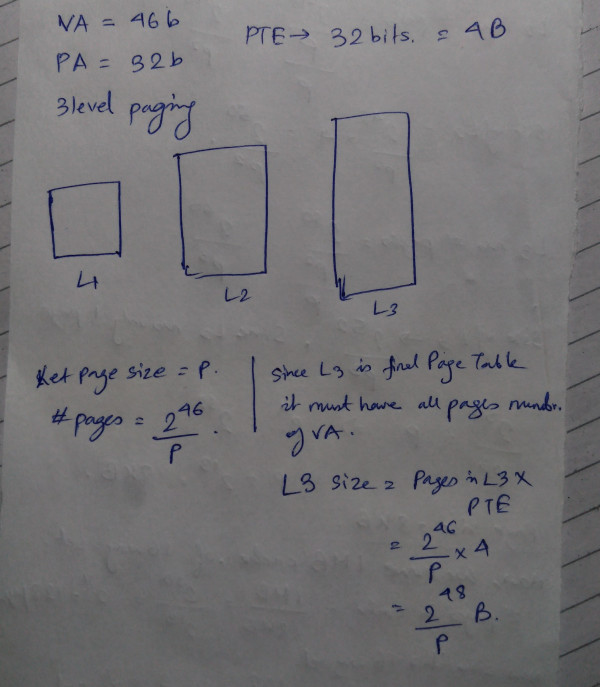 VA = 46b
PTE → 32 bits. = 4B
PA = 32b
3 level paging
L1
L2
L3
Let page size = P.
# pages = 2^46 / P .
Since L3 is final Page Table
it must have all pages number.
of VA.
L3 Size = Pages in L3 ×
PTE
= 2^46 / P × 4
= 2^48 / P B.